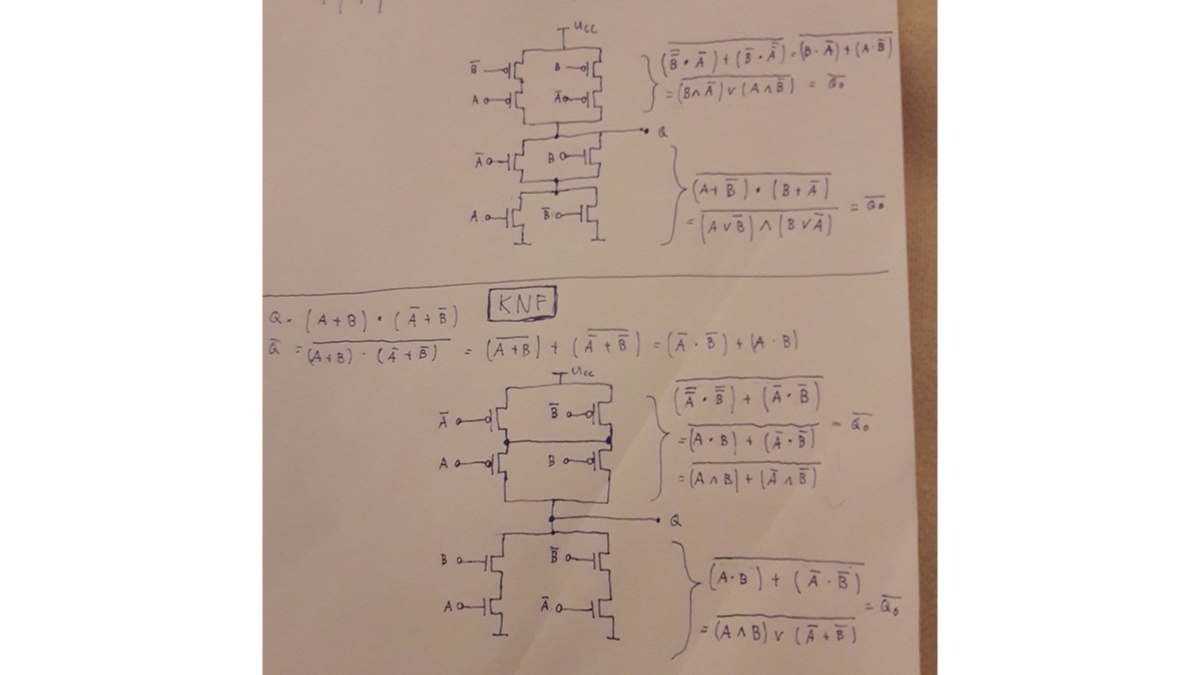 Ucc
B̅ B
A A̅
(B̿ · A̅) + (B̅ · A̿) = (B · A̅) + (A · B̅)
= (B ∧ A̅) ∨ (A ∧ B̅) = Q̅₀
Q
A̅ B
A B̅
(A + B̅) · (B + A̅)
= (A ∨ B̅) ∧ (B ∨ A̅) = Q̅₀
KNF
Q = (A + B) · (A̅ + B̅)
Q̅ = (A + B) · (A̅ + B̅) = (A + B) + (A̅ + B̅) = (A̅ · B̅) + (A · B)
Ucc
A̅ B̅
A B
(A̿ · B̿) + (A̅ · B̅)
= (A · B) + (A̅ · B̅) = Q̅₀
= (A ∧ B) + (A̅ ∧ B̅)
Q
B B̅
A A̅
(A · B) + (A̅ · B̅)
= (A ∧ B) ∨ (A̅ + B̅) = Q̅₀